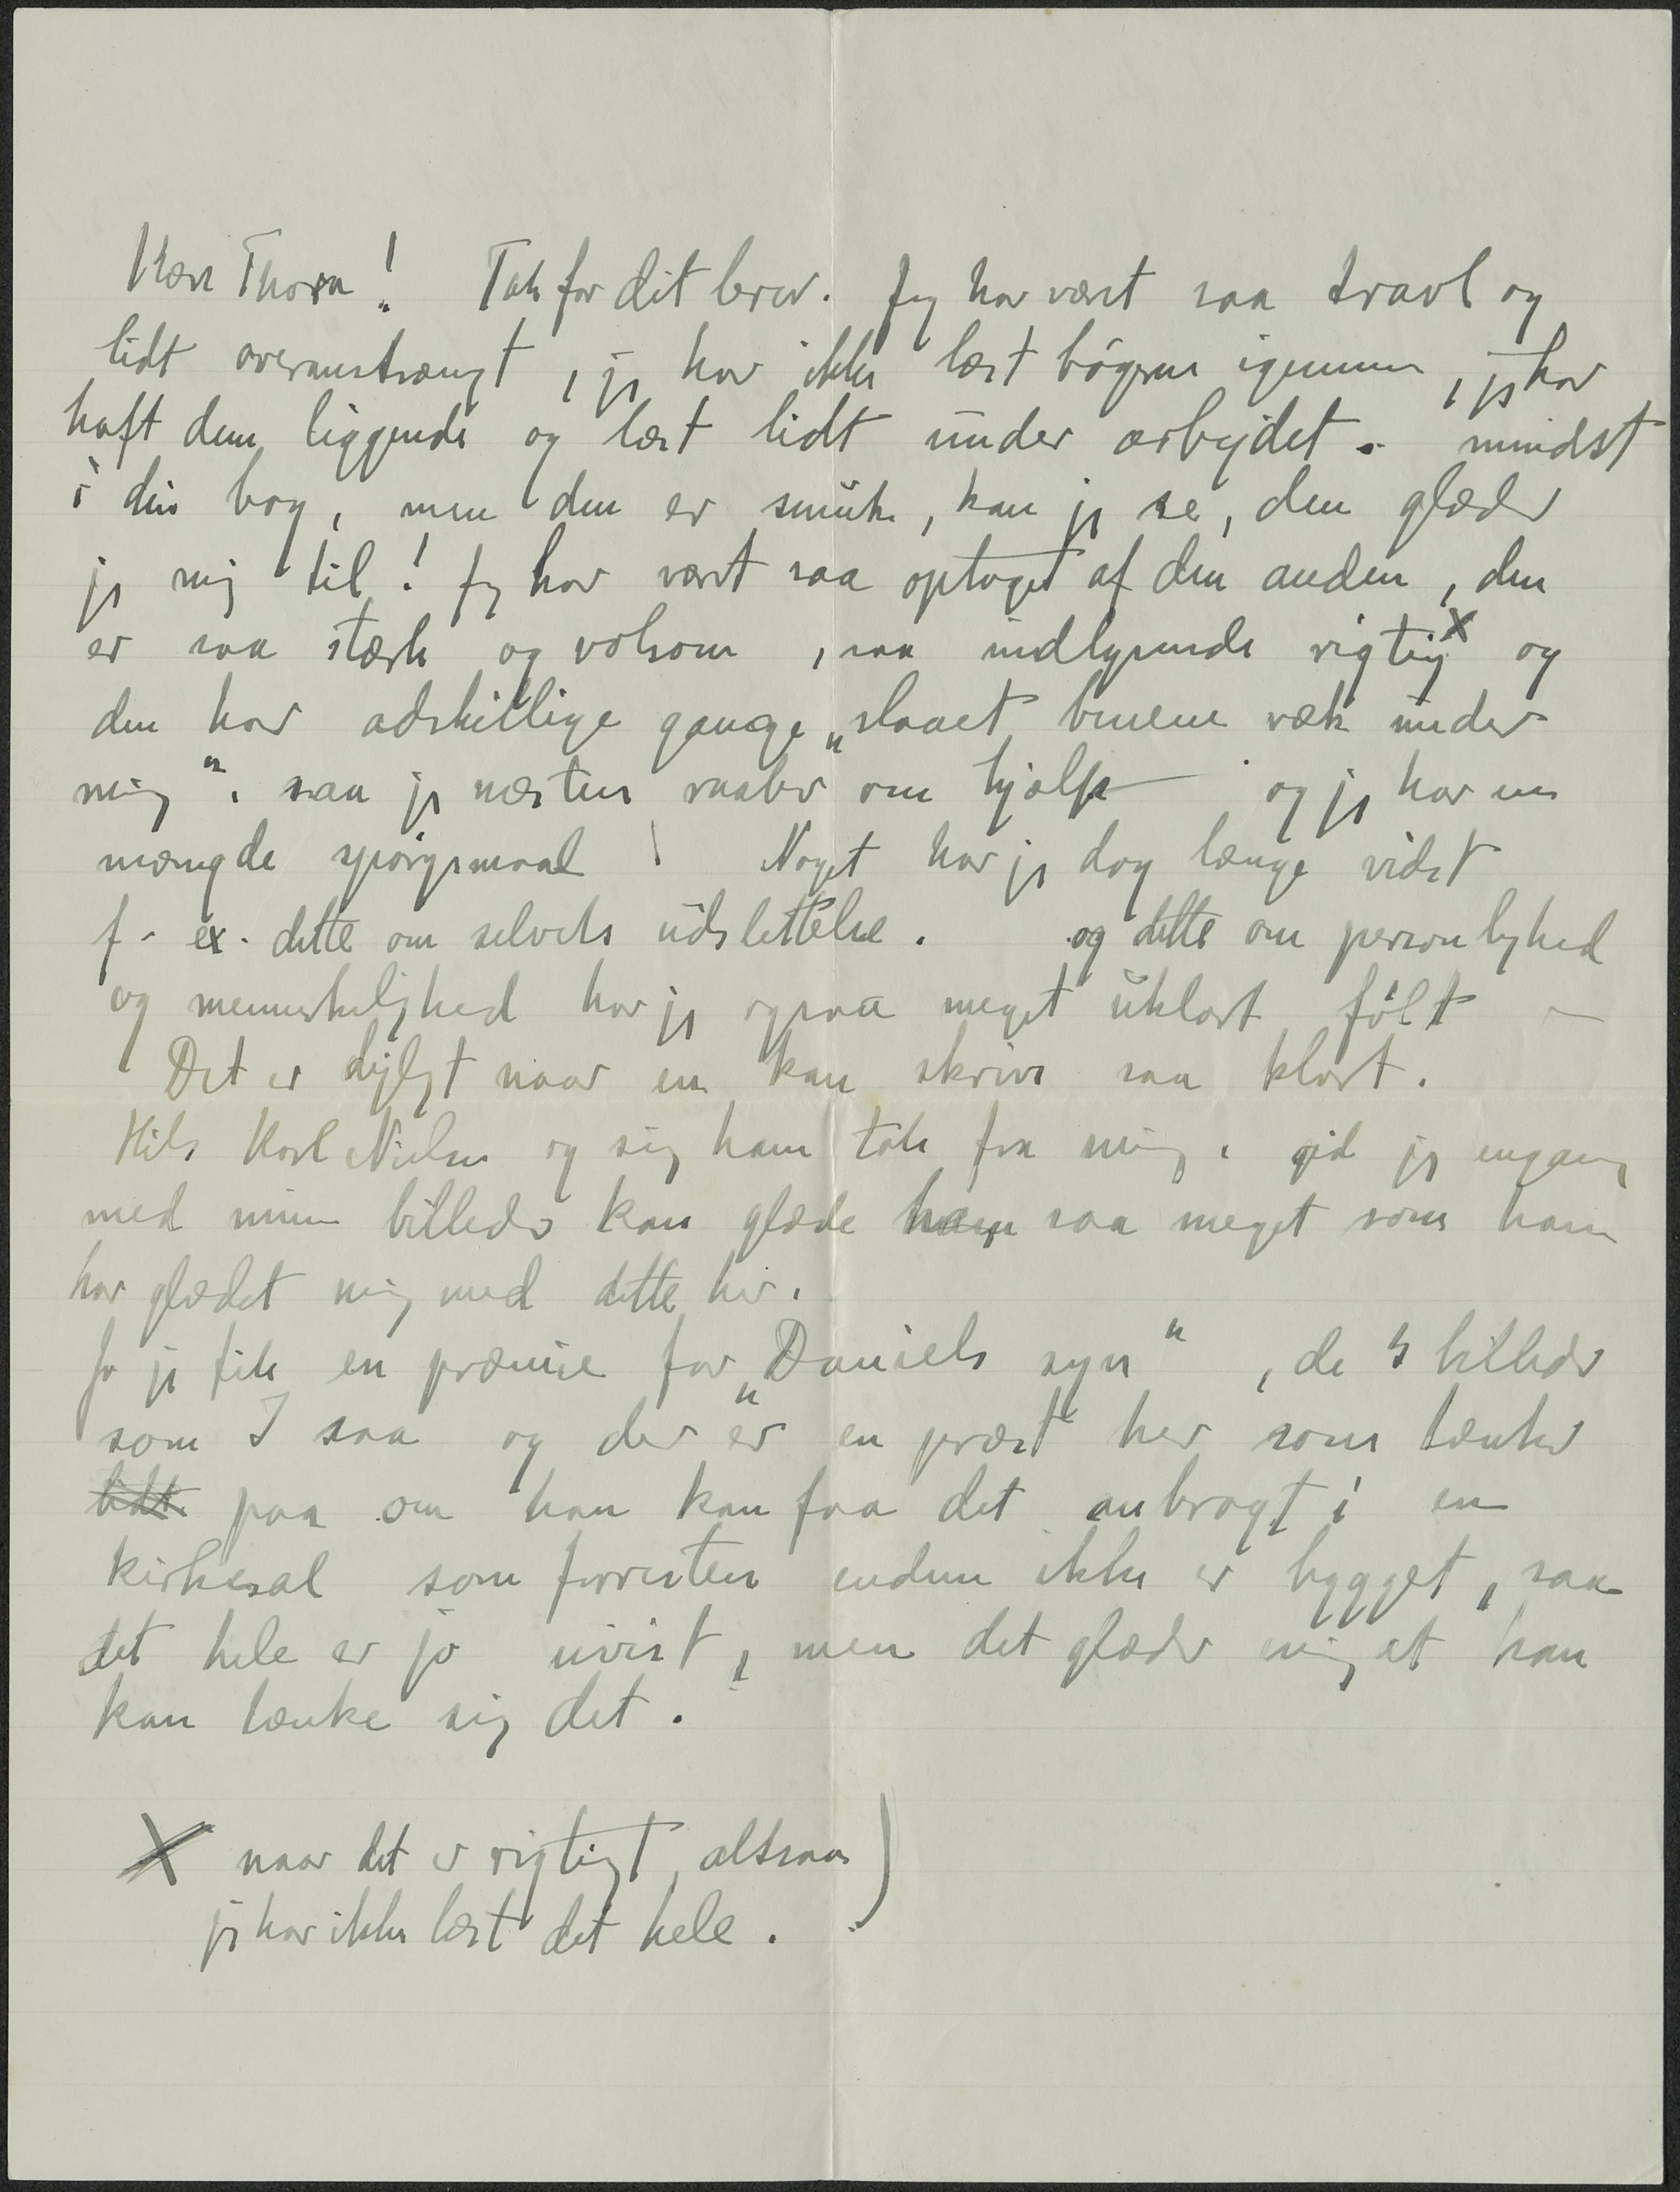 Kære Thora! Tak for dit brev. Jeg har vært saa travl og
lidt overanstrængt, jeg har ikke læst bøgerne igennem, jeg har
haft dem liggende og læst lidt under arbejdet. mindst
i din bog, men den er smuk, kan jeg se, den glæder
jeg mig til! Jeg har vært saa optaget af den anden, den
er saa stærk og volsom, saa indlysende rigtig x og
den har adskillige gange „slaaet benene væk under
mig“. saa jeg næsten raaber om hjælp og jeg har en
mængde spörgsmaal! Noget har jeg dog længe vidst
f. ex. dette om selvets udslettelse. og dette om personlighed
og menneskelighed har jeg ogsaa meget uklart følt –
Det er dejligt naar en kan skrive saa klart.
Hils Karl Nielsen og sig ham tak fra mig. gid jeg engang
med mine billeder kan glæde ham saa meget som han
har glædet mig med dette her.
Jo jeg fik en præmie for „Daniels syn“, de billeder
som I saa og der er en præst her som tænker
lidt paa om han kan faa det anbragt i en
kirkesal som forresten endnu ikke er bygget, saa
det hele er jo uvist, men det glæder mig at han
kan tænke sig det.
X naar det er rigtigt, altsaa)
jeg har ikke læst det hele.